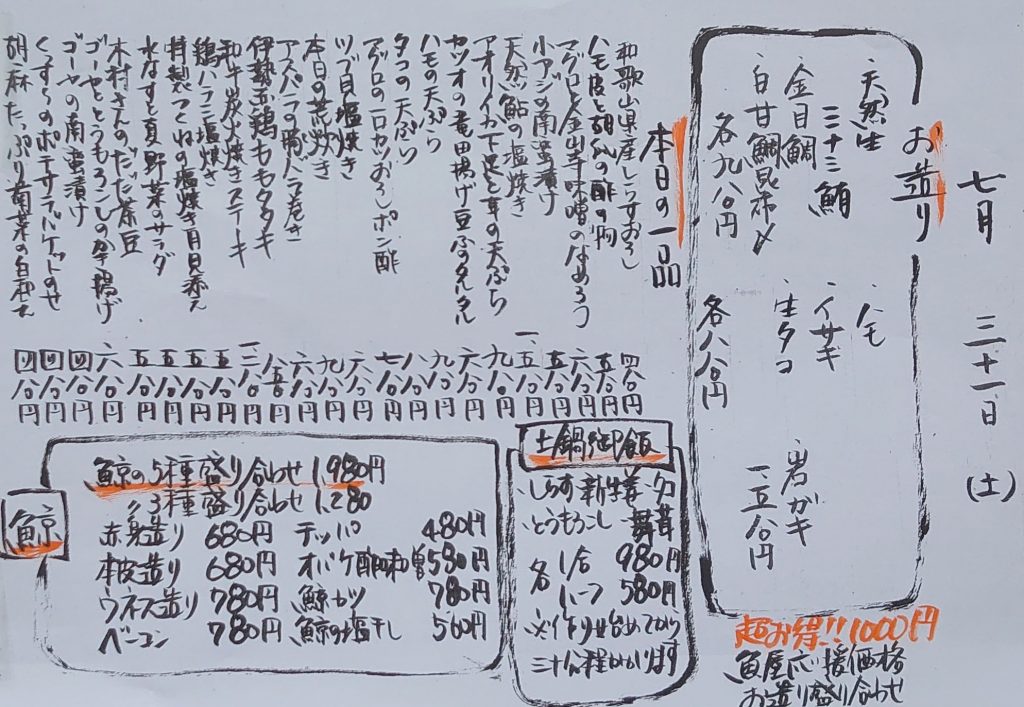 七月 三十一日(土)
お造り
・天然生
ミナミ鮪
・金目鯛
・白甘鯛昆布〆
各九八〇円
ハモ
イサギ
生タコ
各八八〇円
岩ガキ
一五〇円
本日の一品
和歌山県産しらすおろし 四八〇円
ハモ皮と胡瓜の酢の物 五八〇円
マグロと金山寺味噌のなめろう 六八〇円
小アジの南蛮漬け 五八〇円
天然鮎の塩焼き
アオリイカ下足と茸の天ぷら 九八〇円
カツオの竜田揚げ豆ふのタルタル 六八〇円
ハモの天ぷら 九八〇円
タコの天ぷら 八八〇円
マグロの一口カツおろしポン酢 七八〇円
ツブ貝塩焼き 六八〇円
本日の荒炊き 九八〇円
アスパラの豚バラ巻き 六八〇円
伊勢赤鶏ももタタキ
和牛炭火焼きステーキ
鶏ハラミ塩焼き 五八〇円
特製つくねの塩焼き月見添え 五八〇円
水なすと夏野菜のサラダ 五八〇円
木村さんのだだ茶豆 五八〇円
ゴーヤととうもろこしのかき揚げ 六八〇円
ゴーヤの南蛮漬け 四八〇円
のポテサラバケットのせ 四八〇円
胡麻たっぷり菊菜の白和え 四八〇円
鯨
鯨の5種盛り合わせ 1,980円
〃3種盛り合わせ 1,280
赤身造り 680円 テッパ 480円
本皮造り 680円 オバケ酢味噌 580円
ウネス造り 780円 鯨カツ 780円
ベーコン 780円 鯨の塩干し 560円
土鍋御飯
・しらす新生姜・タコ
・とうもろこし・舞茸
各 1合 980円
各 ハーフ 580円
※作り始めてから
三十分程かかります
超お得!!1000円
魚屋応援価格
お造り盛り合わせ